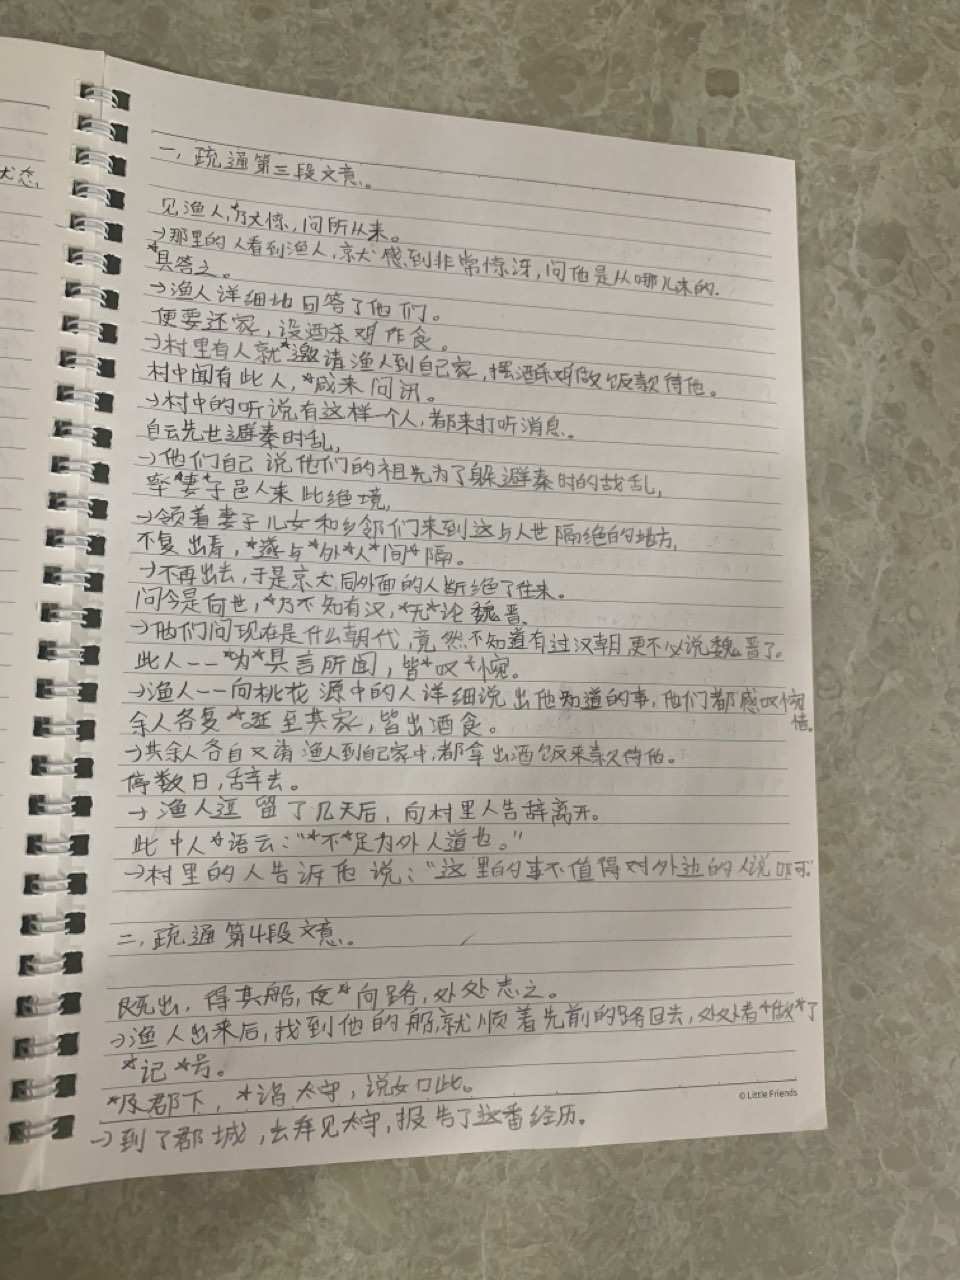 犬态,
一, 疏通第三段文意。
见渔人,*乃大惊, 问所从来。
→那里的人看到渔人, 京犬感到非常惊讶, 问他是从哪儿来的.
*具答之。
→渔人详细地回答了他们。
便要还家, 设酒杀鸡作食。
→村里有人就*邀请渔人到自己家, 摆酒杀鸡做饭款待他。
村中闻有此人, *咸来问讯。
→村中的听说有这样一个人, 都来打听消息。
自云先世避秦时乱,
→他们自己说他们的祖先为了躲避秦时的战乱,
率*妻*子邑人来此绝境,
→领着妻子儿女和乡邻们来到这与人世隔绝的地方,
不复出焉, *遂与*外*人*间*隔。
→不再出去, 于是京犬同外面的人断绝了往来。
问今是何世, *乃不知有汉, *无*论魏晋.
→他们问现在是什么朝代, 竟然不知道有过汉朝, 更不必说魏晋了。
此人一一*为*具言所闻, 皆*叹*惋。
→渔人一一向桃花源中的人详细说出他知道的事, 他们都感叹惋
惜。
余人各复*延至其家, 皆出酒食。
→其余人各自又请渔人到自己家中, 都拿出酒饭来款待他。
停数日, 辞去。
→渔人逗留了几天后, 向村里人告辞离开。
此中人*语云: "*不*足为外人道也。"
→村里的人告诉他说: "这里的事不值得对外边的人说啊!"
二, 疏通第4段文意。
既出, 得其船, 便*向路, 处处志之。
→渔人出来后, 找到他的船, 就顺着先前的路回去, 处处都*做*了
*记*号。
*及郡下, *诣太守, 说如此。
→到了郡城, 去拜见太守, 报告了这番经历。
© Little Friends